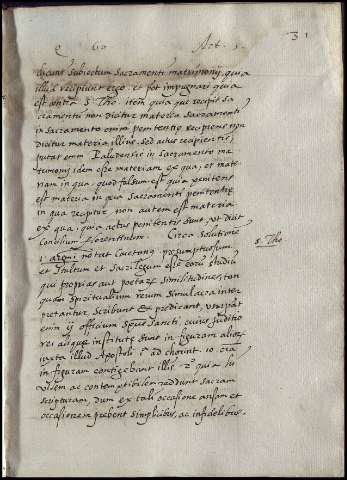 Q 60 Art. 1. 31
dicunt subiectum sacramenti matrimonij, quia
illud recipiunt ergo. et pot impugnari quia
est contra S. Tho. item quia qui recipit sa
cramentū non dicitur materia sacramenti
in sacramento enim penitentię recipiens non
dicitur materia illius, sed actus recipientis;
putat enim Paludensis in sacramento ma
trimonij idem esse materiam ex qua, et mate
riam in qua. quod falsum est quia penitens
est materia in qua sacramenti penitentię
in qua recipitur non autem est materia
ex qua, quia actus penitentis sunt, vt dicit
Concilium Florentinum. Circa solutionē
1. argu.i notat Caietanus pręsumptuosum, S. Tho
et stultum et sacrilegum esse eorū studiū
qui proprias aut poetarū similitudines, tan
quam spiritualium rerum simulacra inter
pretantur, scribunt et predicant, vsurpāt
enim ij officium Spūs Sancti, cuius iuditio
res alique institutę sunt in figuram aliorū
iuxta illud Apostoli 1ª ad chorint. 10. oīa
in figuram contigebant illis. 2º quia lu
videm ac contemptibilem reddunt sacram
scripturam, dum ex tali occasione ansam et
occasionem prebent simplicibus, ac infidelibus.